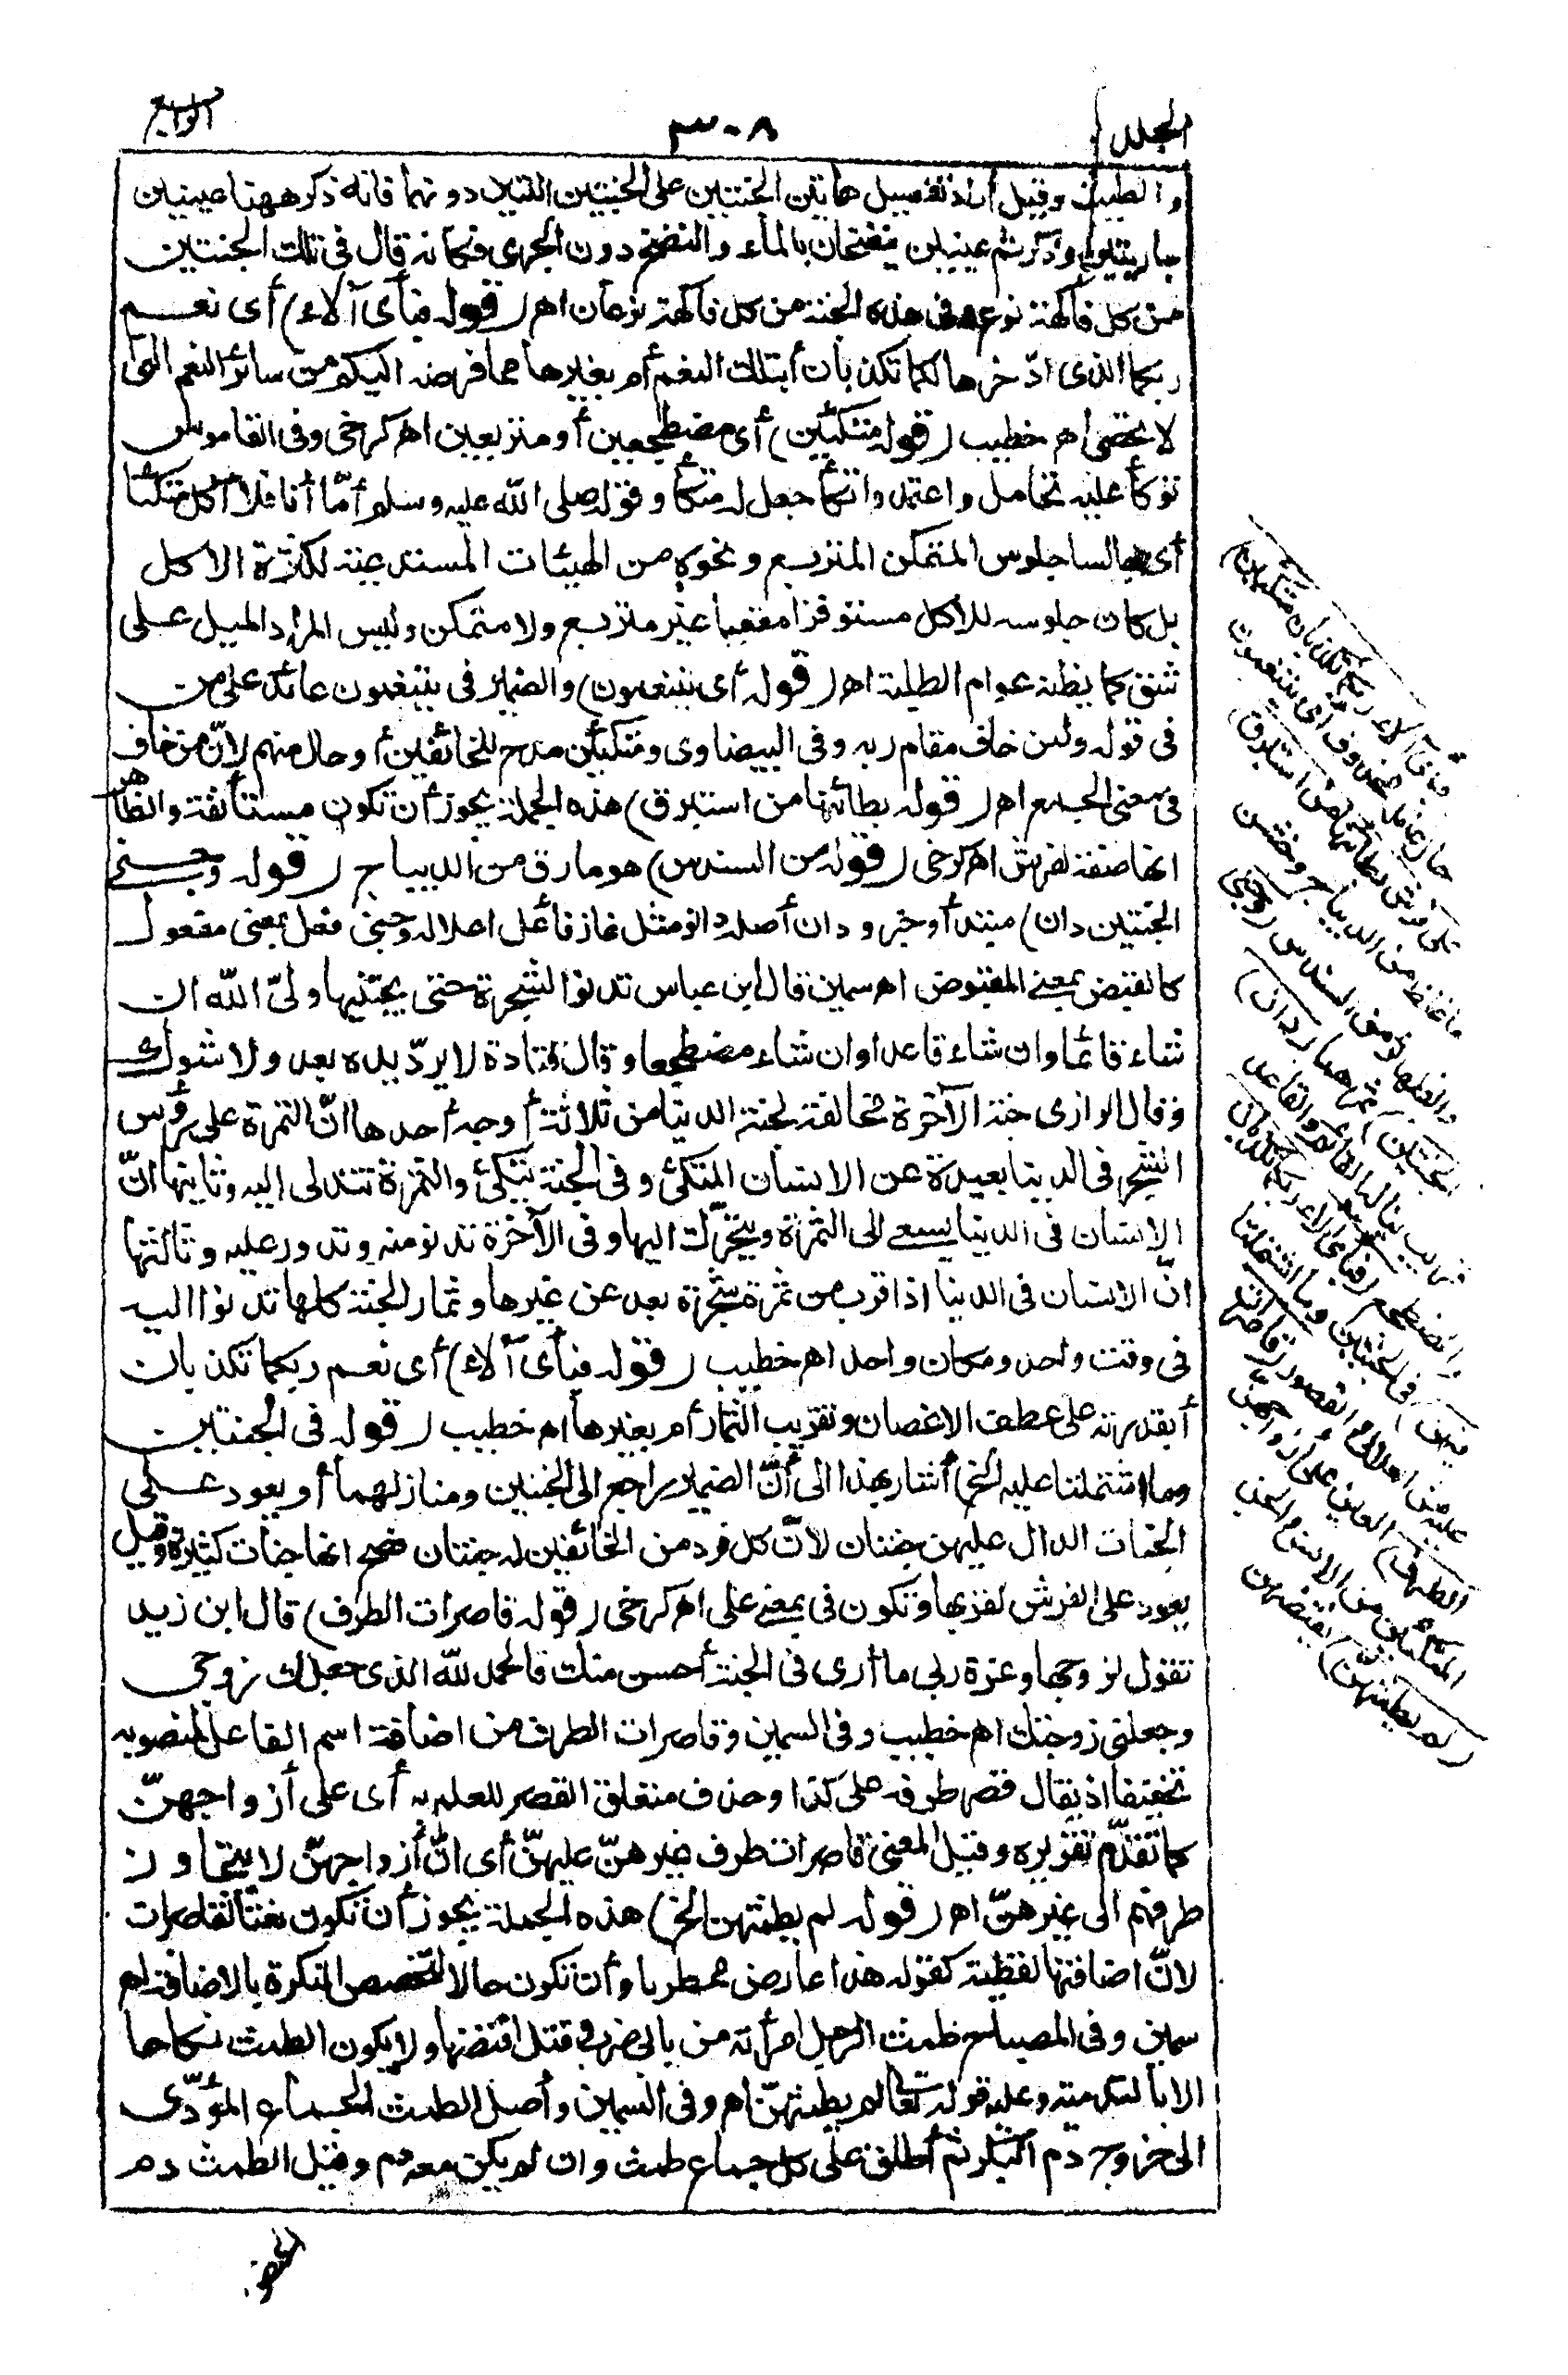 المجلد
٣٠٨
الرابع
والطيبة وقيل أراد تفضيل هاتين الجنتين على الجنتين اللتين دونهما فانه ذكر ههنا عينين
جاريتين وذكر ثم عينين ينضحان بالماء والنضح دون الجرى فكانه قال فى تلك الجنتين
من كل فاكهة نوع وفى هذه الجنة من كل فاكهة نوعان اهـ (قوله فبأى آلاء) أى نعم
ربكما الذى ادّخرها لكما تكذبان أبتلك النعم أم بغيرها مما فرضه اليكم من سائر النعم التى
لا تحصى اهـ خطيب (قوله متكئين) أى مضطجعين أو متربعين اهـ كرخى وفى القاموس
توكأ عليه تحامل واعتمد واتكأ جعل له متكأ وقوله صلى الله عليه وسلم أمّا أنا فلا آكل متكئا
أى جالسا جلوس المتمكن المتربع ونحوه من الهيئات المستدعية لكثرة الاكل
بل كان جلوسه للأكل مستوفزا مقعيا غير متربع ولا متمكن وليس المراد الميل على
شق كما يظنه عوام الطلبة اهـ (قوله أى يتنعمون) والضمير فى يتنعمون عائد على من
فى قوله ولمن خاف مقام ربه وفى البيضاوى ومتكئين مدح للخائفين أو حال منهم لانّ من خاف
فى معنى الجمع اهـ (قوله بطائنها من استبرق) هذه الجملة يجوز أن تكون مستأنفة والظاهر
انها صفة لفرش اهـ كرخى (قوله من السندس) هو مارق من الديباج (قوله وجنى
الجنتين دان) مبتدأ وخبر ودان أصله دانو مثل غاز فأعل اعلاله وجنى فعل بمعنى مفعول
كالقبض بمعنى المقبوض اهـ سمين قال ابن عباس تدنو الشجرة حتى يجتنيها ولىّ الله ان
شاء قائما وان شاء قاعدا وان شاء مضطجعا وقال قتادة لا يردّ يده بعد ولا شوك
وقال الرازى جنة الآخرة مخالفة لجنة الدنيا من ثلاثة أوجه أحدها انّ الثمرة على رؤس
الشجر فى الدنيا بعيدة عن الانسان المتكئ وفى الجنة يتكئ والثمرة تتدلى اليه وثانيها انّ
الانسان فى الدنيا يسعى الى الثمرة ويتحرّك اليها وفى الآخرة تدنو منه وتدور عليه وثالثها
انّ الانسان فى الدنيا اذا قرب من ثمرة شجرة بعد عن غيرها وثمار الجنة كلها تدنوا اليه
فى وقت واحد ومكان واحد اهـ خطيب (قوله فبأى آلاء) أى نعم ربكما تكذبان
أبقدرته على عطف الاغصان وتقريب الثمار أم بغيرها اهـ خطيب (قوله فى الجنتين
وما اشتملتا عليه الخ) أشار بهذا الى أنّ الضمير راجع الى الجنتين ومنازلهما أو يعود على
الجنات الدال عليهن جنتان لانّ كل فرد من الخائفين له جنتان فصح انها جنات كثيرة وقيل
يعود على الفرش لقربها وتكون فى بمعنى على اهـ كرخى (قوله قاصرات الطرف) قال ابن زيد
تقول لزوجها وعزة ربى ما أرى فى الجنة أحسن منك فالحمد لله الذى جعلك زوجى
وجعلنى زوجتك اهـ خطيب وفى السمين وقاصرات الطرف من اضافة اسم الفاعل لمنصوبه
تخفيفا اذ يقال قصر طرفه على كذا وحذف متعلق القصر للعلم به أى على أزواجهنّ
كما تقدّم تقريره وقيل المعنى قاصرات طرف غيرهنّ عليهنّ أى انّ أزواجهنّ لا يتجاوز
طرفهم الى غيرهنّ اهـ (قوله لم يطمثهن الخ) هذه الجملة يجوز أن تكون نعتا لقاصرات
لانّ اضافتها لفظية كقوله هذا عارض ممطرنا وأن تكون حالا لتخصص النكرة بالاضافة اهـ
سمين وفى المصباح طمث الرجل امرأته من بابى ضرب وقتل افتضها ولا يكون الطمث نكاحا
الا بالتدمية وعليه قوله تعالى لم يطمثهنّ اهـ وفى السمين وأصل الطمث الجماع المؤدّى
الى خروج دم البكر ثم أطلق على كل جماع طمث وان لم يكن معه دم وقيل الطمث دم
فبأى آلاء ربكما تكذبان متكئين
حال عامله محذوف أى يتنعمون
على فرش بطائنها من استبرق
ما غلظ من الديباج وخشن
والظهائر من السندس (وجنى
الجنتين) ثمرهما (دان)
قريب يناله القائم والقاعد
والمضطجع (فبأى آلاء ربكما تكذبان
فيهن) فى الجنتين وما اشتملتا
عليه من العلالى والقصور (قاصرات
الطرف) العين على أزواجهن
المتكئين من الانس والجن
(لم يطمثهن) يفتضهن